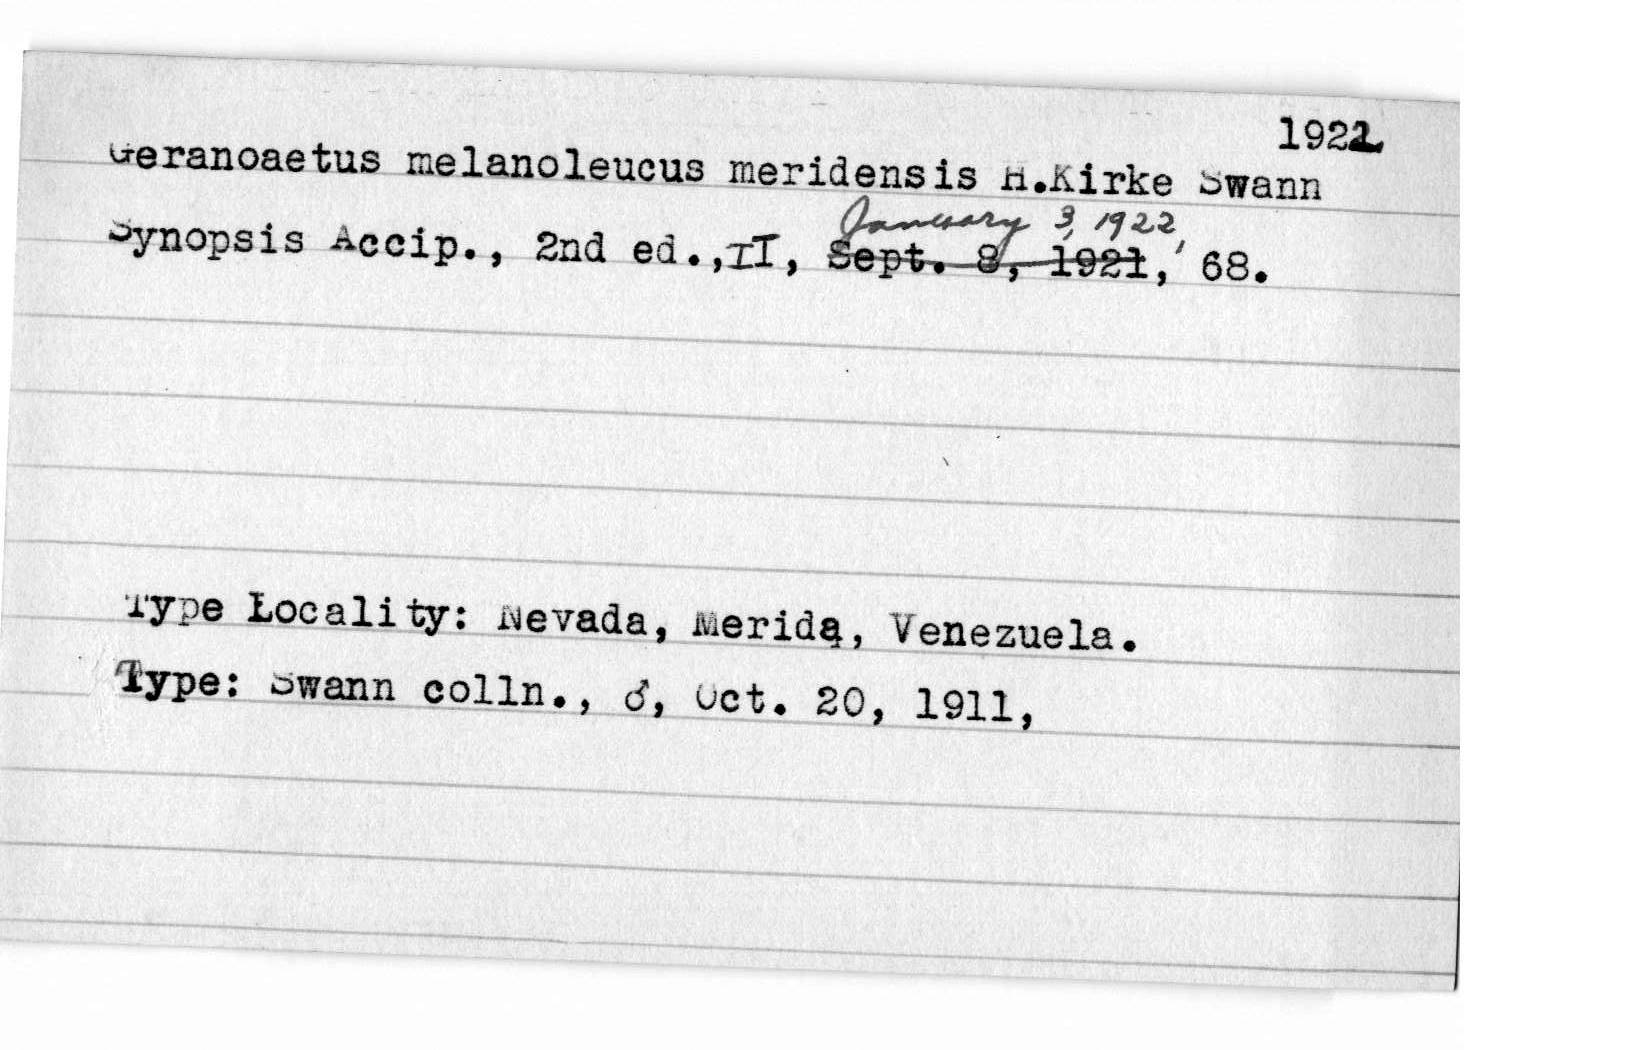 1922
Geranoaetus melanoleucus meridensis H.Kirke Swann
January 3, 1922,
Synopsis Accip., 2nd ed.,II, Sept. 8, 1921, 68.
Type Locality: Nevada, Merida, Venezuela.
Type: Swann colln., ♂, Oct. 20, 1911,